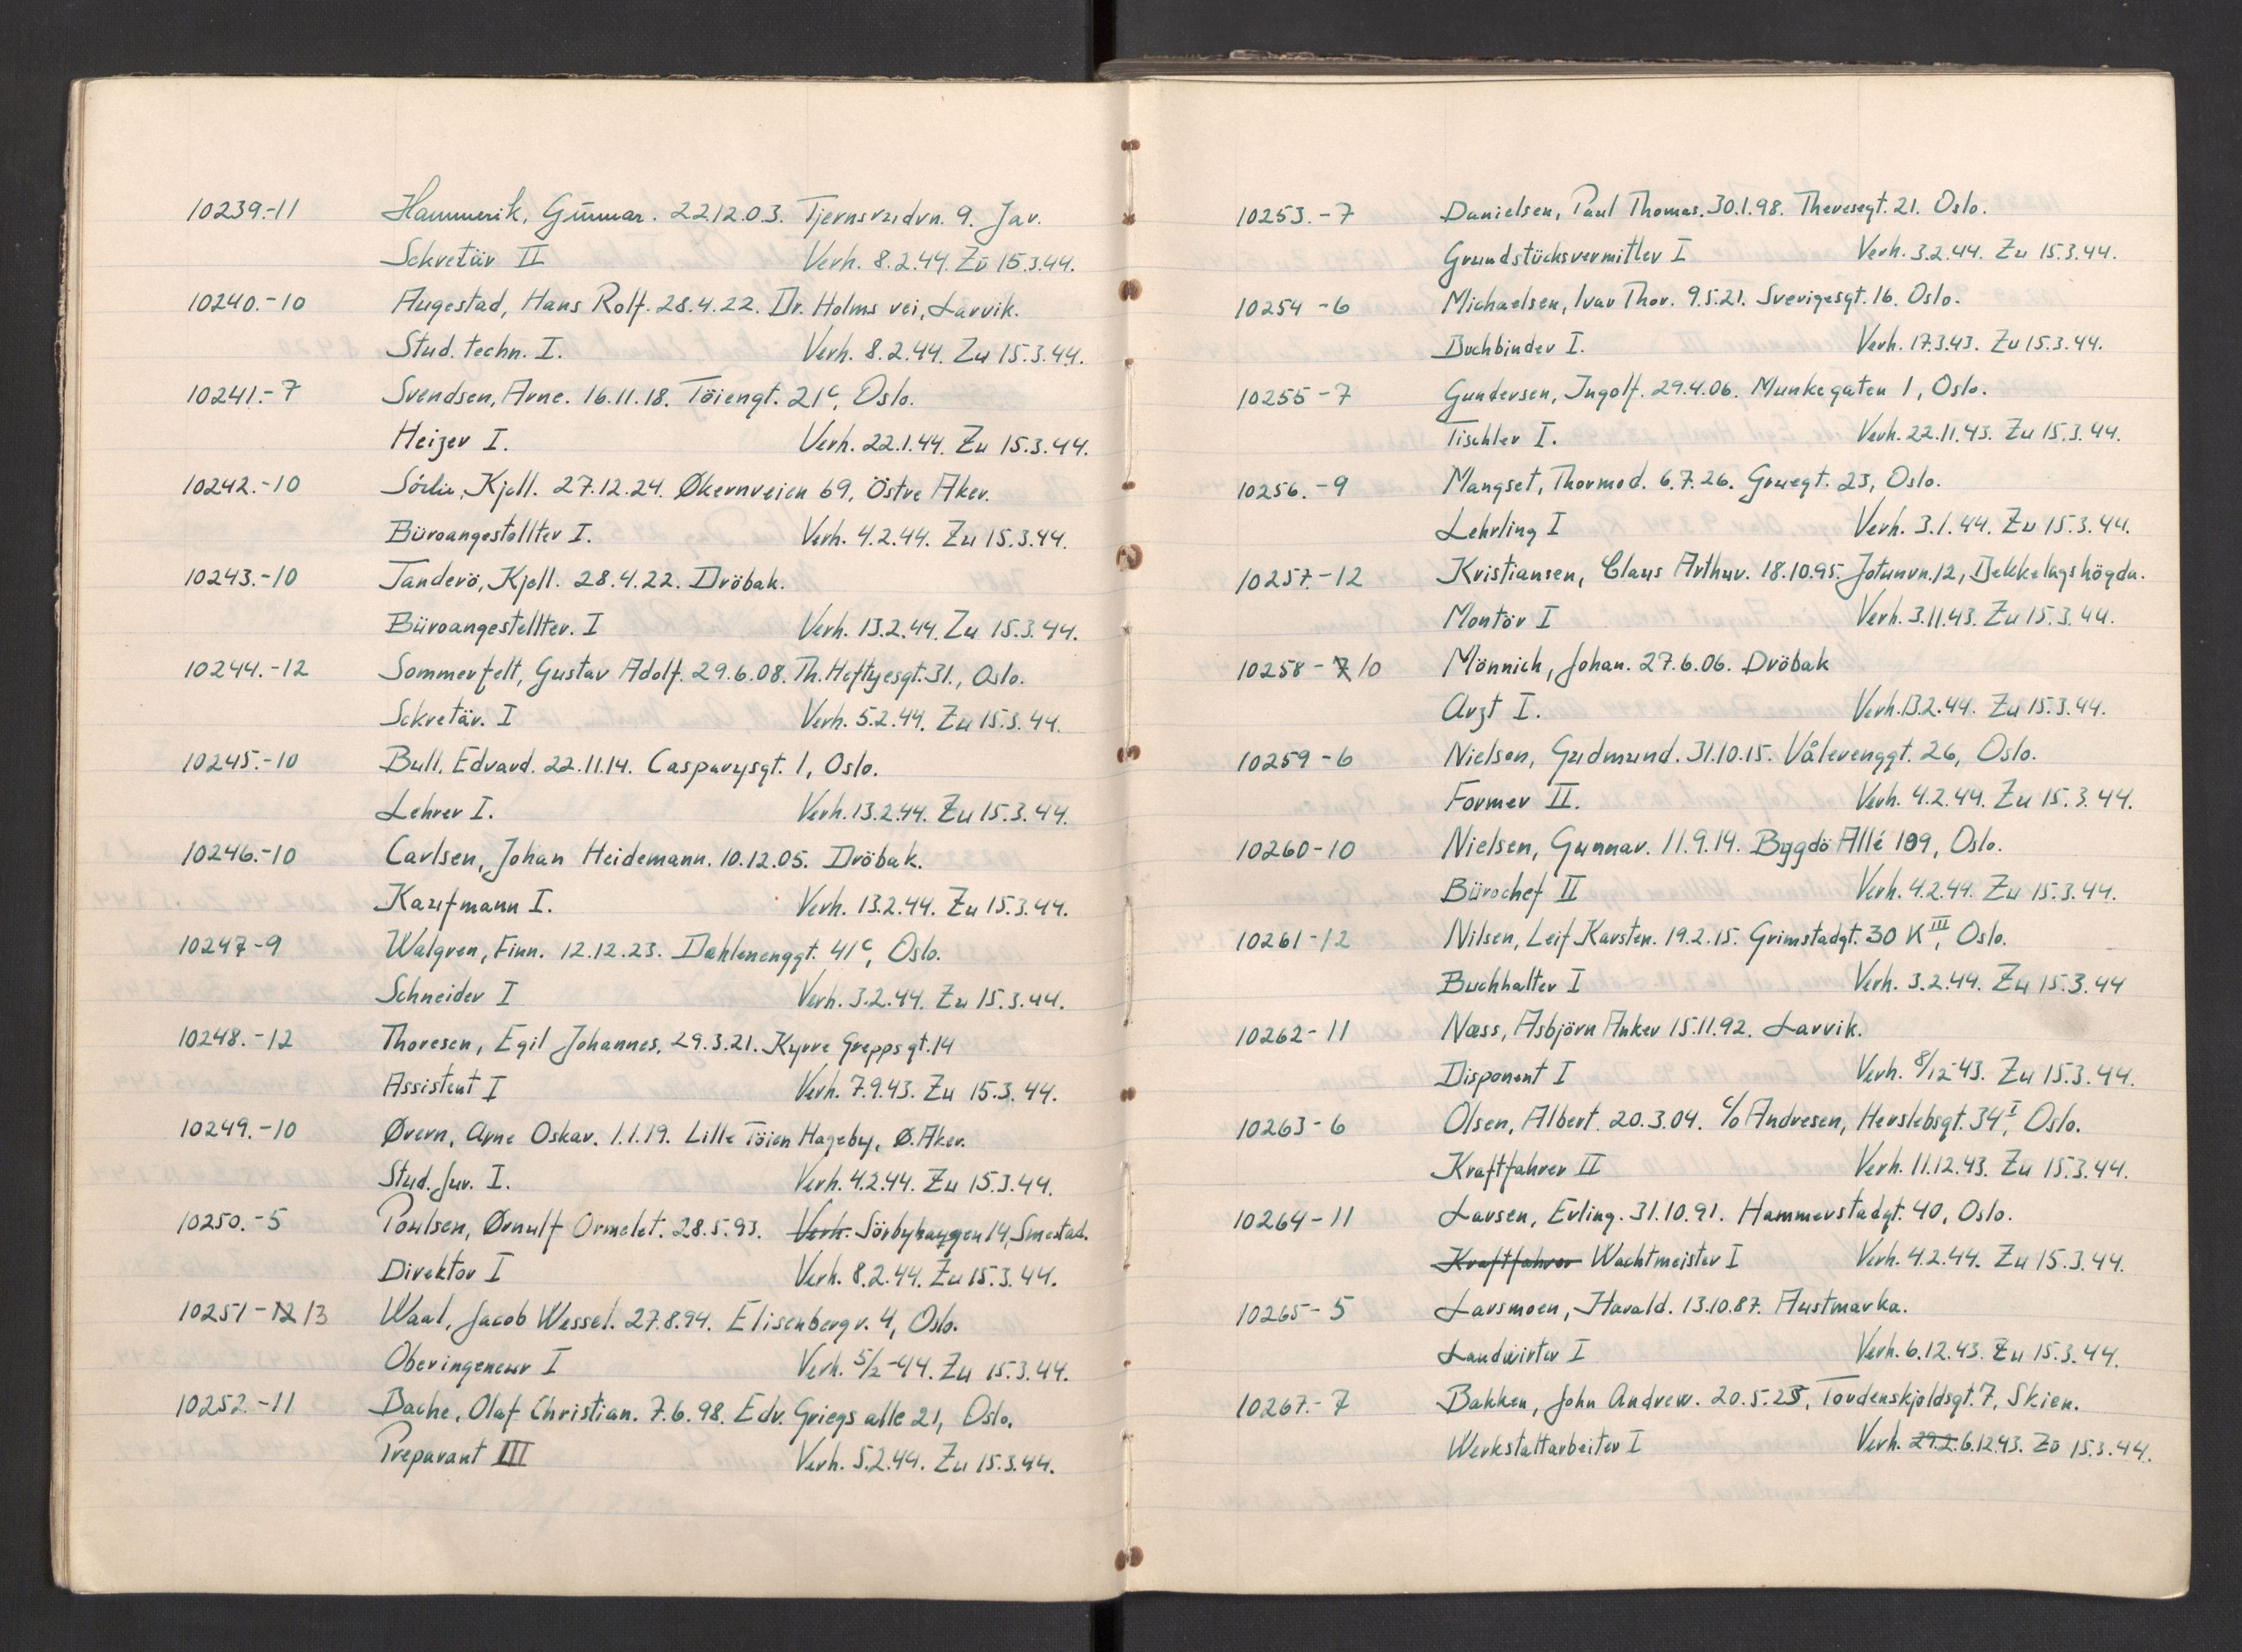 10239.-11 Hammerik, Gunnar. 22.12.03. Tjernsrudvn. 9. Jar.
Sekretär II Verh. 8.2.44. Zu 15.3.44.
10240.-10 Augestad, Hans Rolf. 28.4.22. Dr. Holms vei, Larvik.
Stud. techn. I. Verh. 8.2.44. Zu 15.3.44.
10241.-7 Svendsen, Arne. 16.11.18. Töiengt. 21c, Oslo.
Heizer I. Verh. 22.1.44. Zu 15.3.44.
10242.-10 Sörlie, Kjell. 27.12.24. Økernveien 69, Östre Aker.
Büroangestellter I. Verh. 4.2.44. Zu 15.3.44.
10243.-10 Tanderö, Kjell. 28.4.22. Dröbak.
Büroangestellter. I Verh. 13.2.44. Zu 15.3.44.
10244.-12 Sommerfelt, Gustav Adolf. 29.6.08. Th. Heftyesgt. 31., Oslo.
Sekretär. I Verh. 5.2.44. Zu 15.3.44.
10245.-10 Bull, Edvard. 22.11.14. Casparysgt. 1, Oslo.
Lehrer I. Verh. 13.2.44. Zu 15.3.44.
10246.-10 Carlsen, Johan Heidemann. 10.12.05. Dröbak.
Kaufmann I. Verh. 13.2.44. Zu 15.3.44.
10247-9 Walgren, Finn. 12.12.23. Dahlenenggt. 41c, Oslo.
Schneider I Verh. 3.2.44. Zu 15.3.44.
10248.-12 Thoresen, Egil Johannes. 29.3.21. Kyrre Greppsgt. 14
Assistent I Verh. 7.9.43. Zu 15.3.44.
10249.-10 Ørern, Arne Oskar. 1.1.19. Lille Töien Hageby, Ø. Aker.
Stud. Jur. I. Verh. 4.2.44. Zu 15.3.44.
10250.-5 Poulsen, Ørnulf Ormelet. 28.5.93. Verh. Sörbyhaugen 14, Smestad.
Direktor I Verh. 8.2.44. Zu 15.3.44.
10251-12 13 Waal, Jacob Wessel. 27.8.94. Elisenberg v. 4, Oslo.
Oberingeneur I Verh. 5/2-44. Zu 15.3.44.
10252.-11 Bache, Olaf Christian. 7.6.98. Edv. Griegs alle 21, Oslo.
Preparant III Verh. 5.2.44. Zu 15.3.44.
10253.-7 Danielsen, Paul Thomas. 30.1.98. Theresegt. 21. Oslo.
Grundstücksvermittler I Verh. 3.2.44. Zu 15.3.44.
10254-6 Michaelsen, Ivar Thor. 9.5.21. Sverigesgt. 16. Oslo.
Buchbinder I. Verh. 17.3.43. Zu 15.3.44.
10255-7 Gundersen, Ingolf. 29.4.06. Munkegaten 1, Oslo.
Tischler I. Verh. 22.11.43. Zu 15.3.44.
10256.-9 Mangset, Thormod. 6.7.26. Gruegt. 23, Oslo.
Lehrling I Verh. 3.1.44. Zu 15.3.44.
10257.-12 Kristiansen, Claus Arthur. 18.10.95. Jotunvn. 12, Bekkelagshögda.
Montör I Verh. 3.11.43. Zu 15.3.44.
10258-7 10 Mönnich, Johan. 27.6.06. Dröbak
Arzt I. Verh. 13.2.44. Zu 15.3.44.
10259-6 Nielsen, Gudmund. 31.10.15. Vålerenggt. 26, Oslo.
Former II. Verh. 4.2.44. Zu 15.3.44.
10260-10 Nielsen, Gunnar. 11.9.14. Bygdö Allé 109, Oslo.
Bürochef II Verh. 4.2.44. Zu 15.3.44.
10261-12 Nilsen, Leif Karsten. 19.2.15. Grimstadgt. 30 K III, Oslo.
Buchhalter I Verh. 3.2.44. Zu 15.3.44
10262-11 Næss, Asbjörn Anker 15.11.92. Larvik.
Disponent I Verh. 8/12-43. Zu 15.3.44.
10263-6 Olsen, Albert. 20.3.04. c/o Andresen, Herslebsgt. 34 I, Oslo.
Kraftfahrer II Verh. 11.12.43. Zu 15.3.44.
10264-11 Larsen, Erling. 31.10.91. Hammerstadgt. 40, Oslo.
Kraftfahrer Wachtmeister I Verh. 4.2.44. Zu 15.3.44.
10265-5 Larsmoen, Harald. 13.10.87. Austmarka.
Landwirter I Verh. 6.12.43. Zu 15.3.44.
10267.-7 Bakken, John Andrew. 20.5.23, Tordenskjoldsgt. 7, Skien.
Werkstattarbeiter I Verh. 29.2. 6.12.43. Zu 15.3.44.